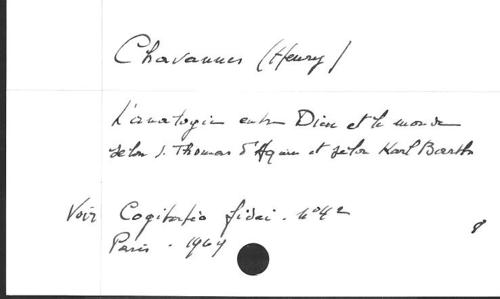 Chavannes (Henry)
L'analogie entre Dieu et le monde
selon S. Thomas d'Aquin et selon Karl Barth
Voir Cogitatio fidei. n° 42
Paris. 1969
8